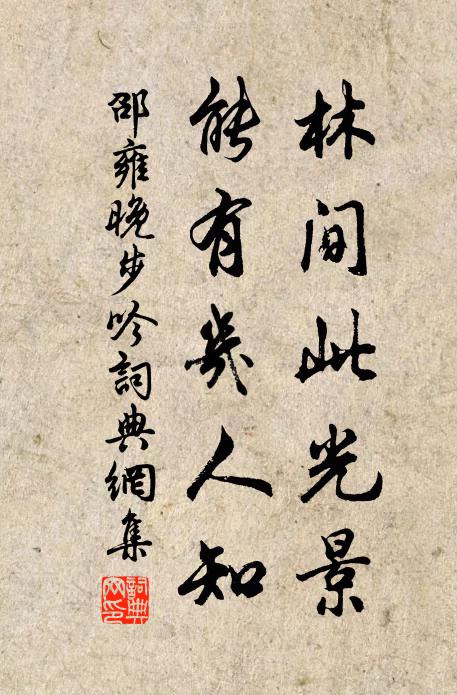 林間此光景
能有幾人知
邵雍晚步吟詞典網集
詞典
網印